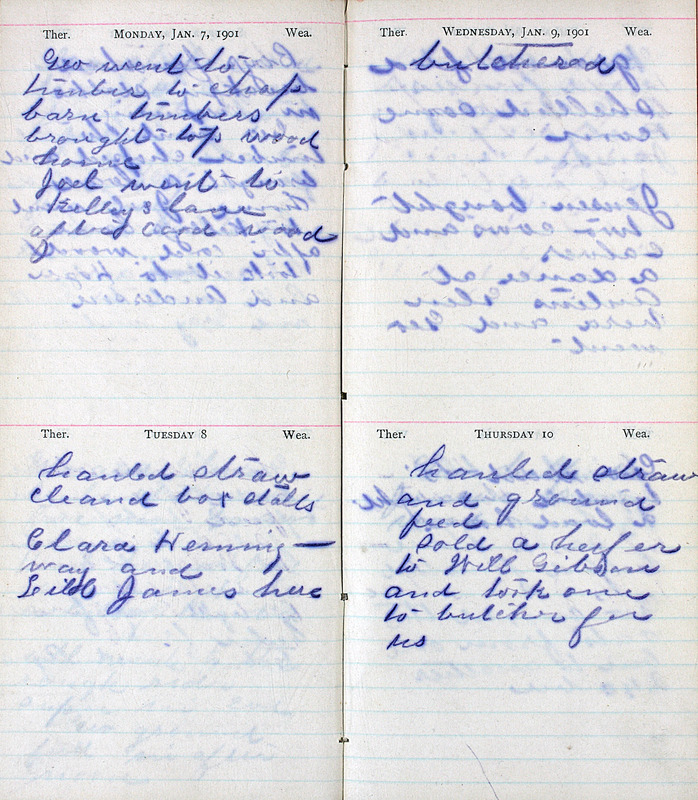 Ther. MONDAY, JAN. 7, 1901 Wea.
Geo went to
timber to chop
barn timbers
brought top wood
home
Joel went to
Kelleys farm
after cord wood
Ther. TUESDAY 8 Wea.
hauled straw
cleand box stalls
Clara Heming—
way and
James here
Ther. WEDNESDAY, JAN. 9, 1901 Wea.
butchered
Ther. THURSDAY 10 Wea.
hauled straw
and ground
feed
sold a heifer
to Will Gibson
and took one
to butcher for
us